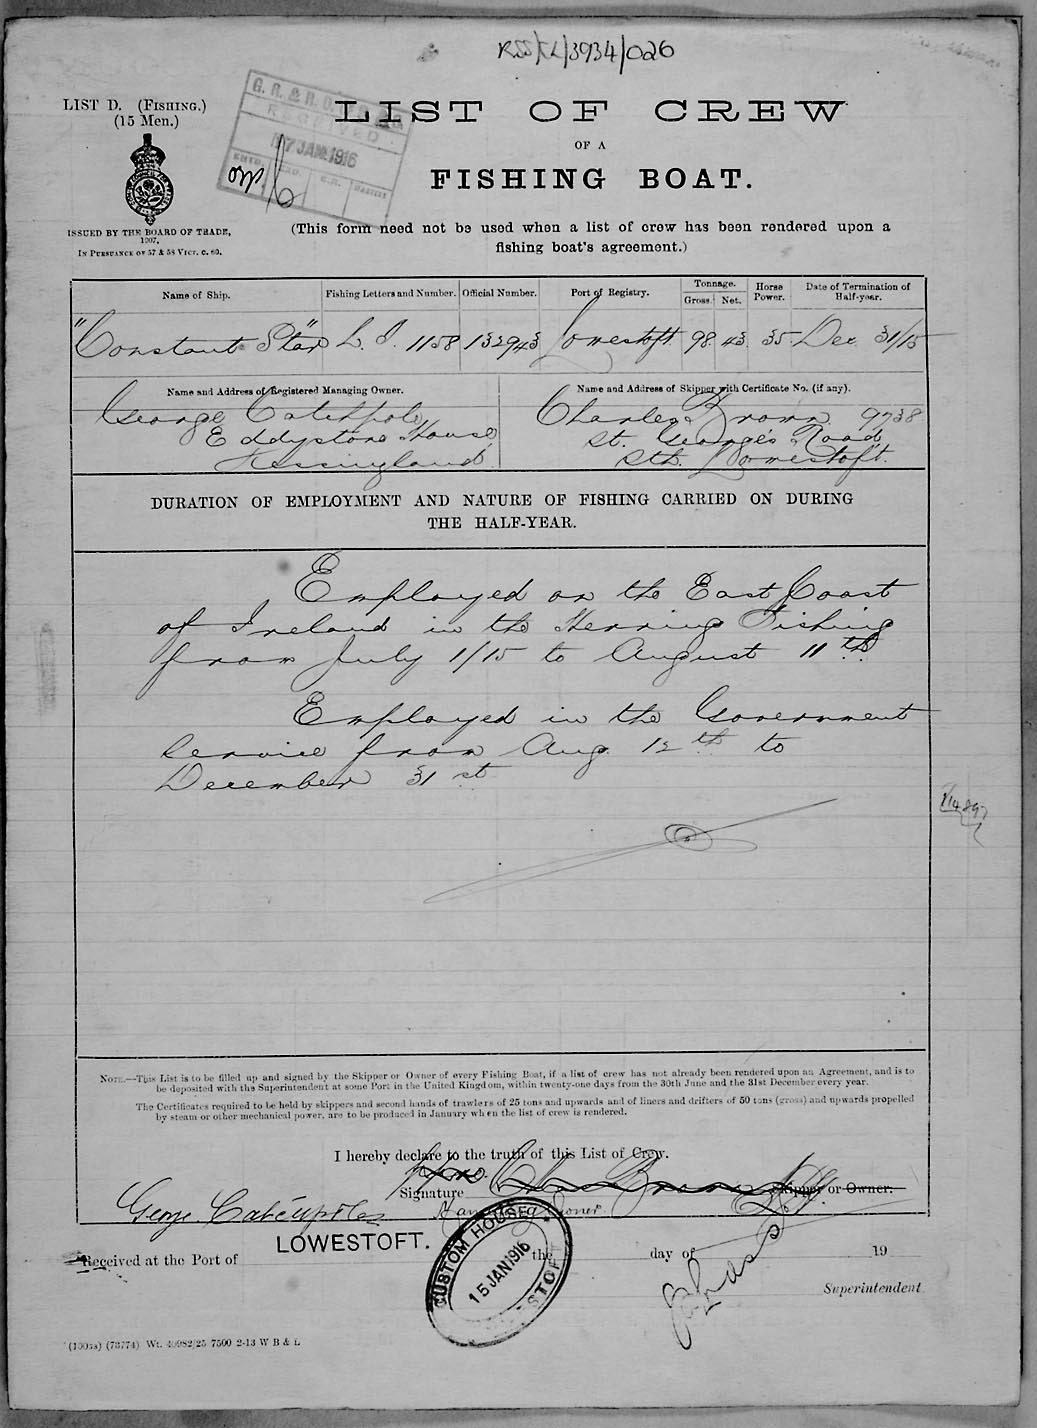 RSS/CL/3934/026
LIST D. (FISHING.)
(15 Men.)
RECEIVED
17 JAN. 1916
LIST OF CREW
OF A
FISHING BOAT.
ISSUED BY THE BOARD OF TRADE,
1907.
IN PURSUANCE OF 57 & 58 VICT. C. 60.
(This form need not be used when a list of crew has been rendered upon a
fishing boat's agreement.)
Name of Ship. Fishing Letters and Number. Official Number. Port of Registry. Tonnage. Gross. Net. Horse Power. Date of Termination of Half-year.
"Constant Star" L.T. 1158 132943 Lowestoft 98 43 35 Dec 31/15
Name and Address of Registered Managing Owner. Name and Address of Skipper with Certificate No. (if any).
George Catchpole Charles Brown 9738
Eddystone House St. George's Road
Kessingland Sth. Lowestoft.
DURATION OF EMPLOYMENT AND NATURE OF FISHING CARRIED ON DURING
THE HALF-YEAR.
Employed on the East Coast
of Ireland in the Herring Fishing
from July 1/15 to August 11th
Employed in the Government
Service from Aug. 12th to
December 31st
NOTE.—This List is to be filled up and signed by the Skipper or Owner of every Fishing Boat, if a list of crew has not already been rendered upon an Agreement, and is to
be deposited with the Superintendent at some Port in the United Kingdom, within twenty-one days from the 30th June and the 31st December every year.
The Certificates required to be held by skippers and second hands of trawlers of 25 tons and upwards and of liners and drifters of 50 tons (gross) and upwards propelled
by steam or other mechanical power, are to be produced in January when the list of crew is rendered.
I hereby declare to the truth of this List of Crew.
Signature Chas Brown Skipper or Owner.
George Catchpole Managing Owner
Received at the Port of LOWESTOFT. the day of 19
CUSTOM HOUSE
15 JAN 1916
LOWESTOFT
Superintendent.